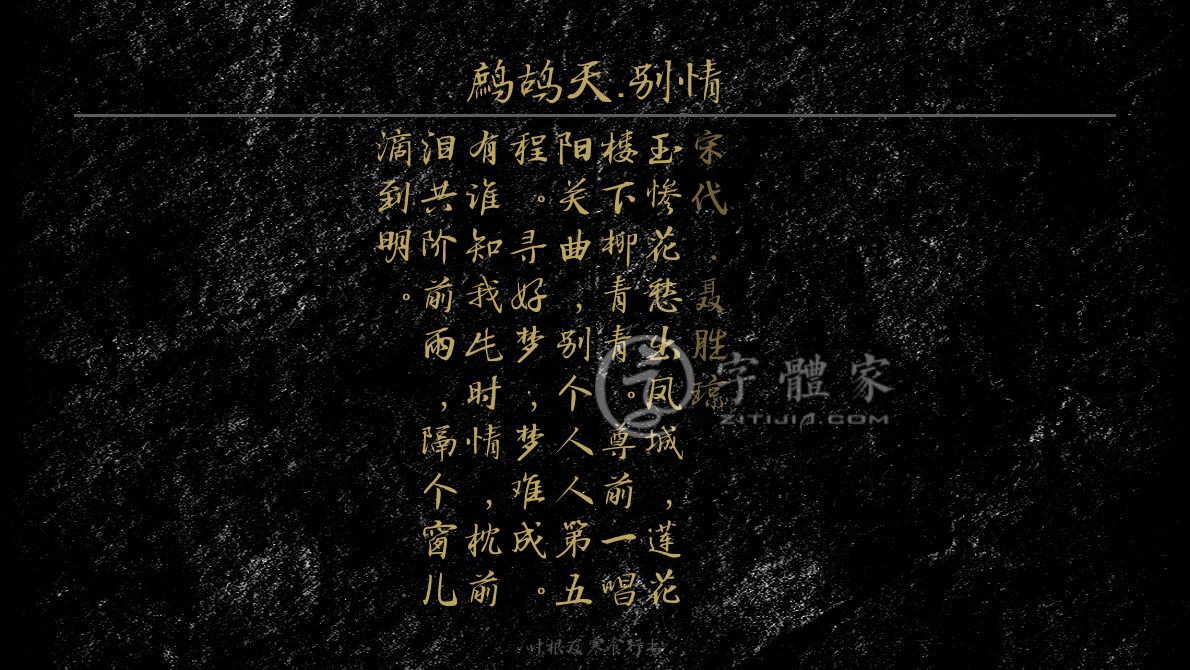 鹧鸪天.别情
宋代·聂胜琼
玉惨花愁出凤城，莲花
楼下柳青青。尊前一唱
阳关曲，别个人人第五
程。寻好梦，梦难成。
有谁知我此时情，枕前
泪共阶前雨，隔个窗儿
滴到明。
字體家
ZITIJIA.COM
叶根友寒食行书